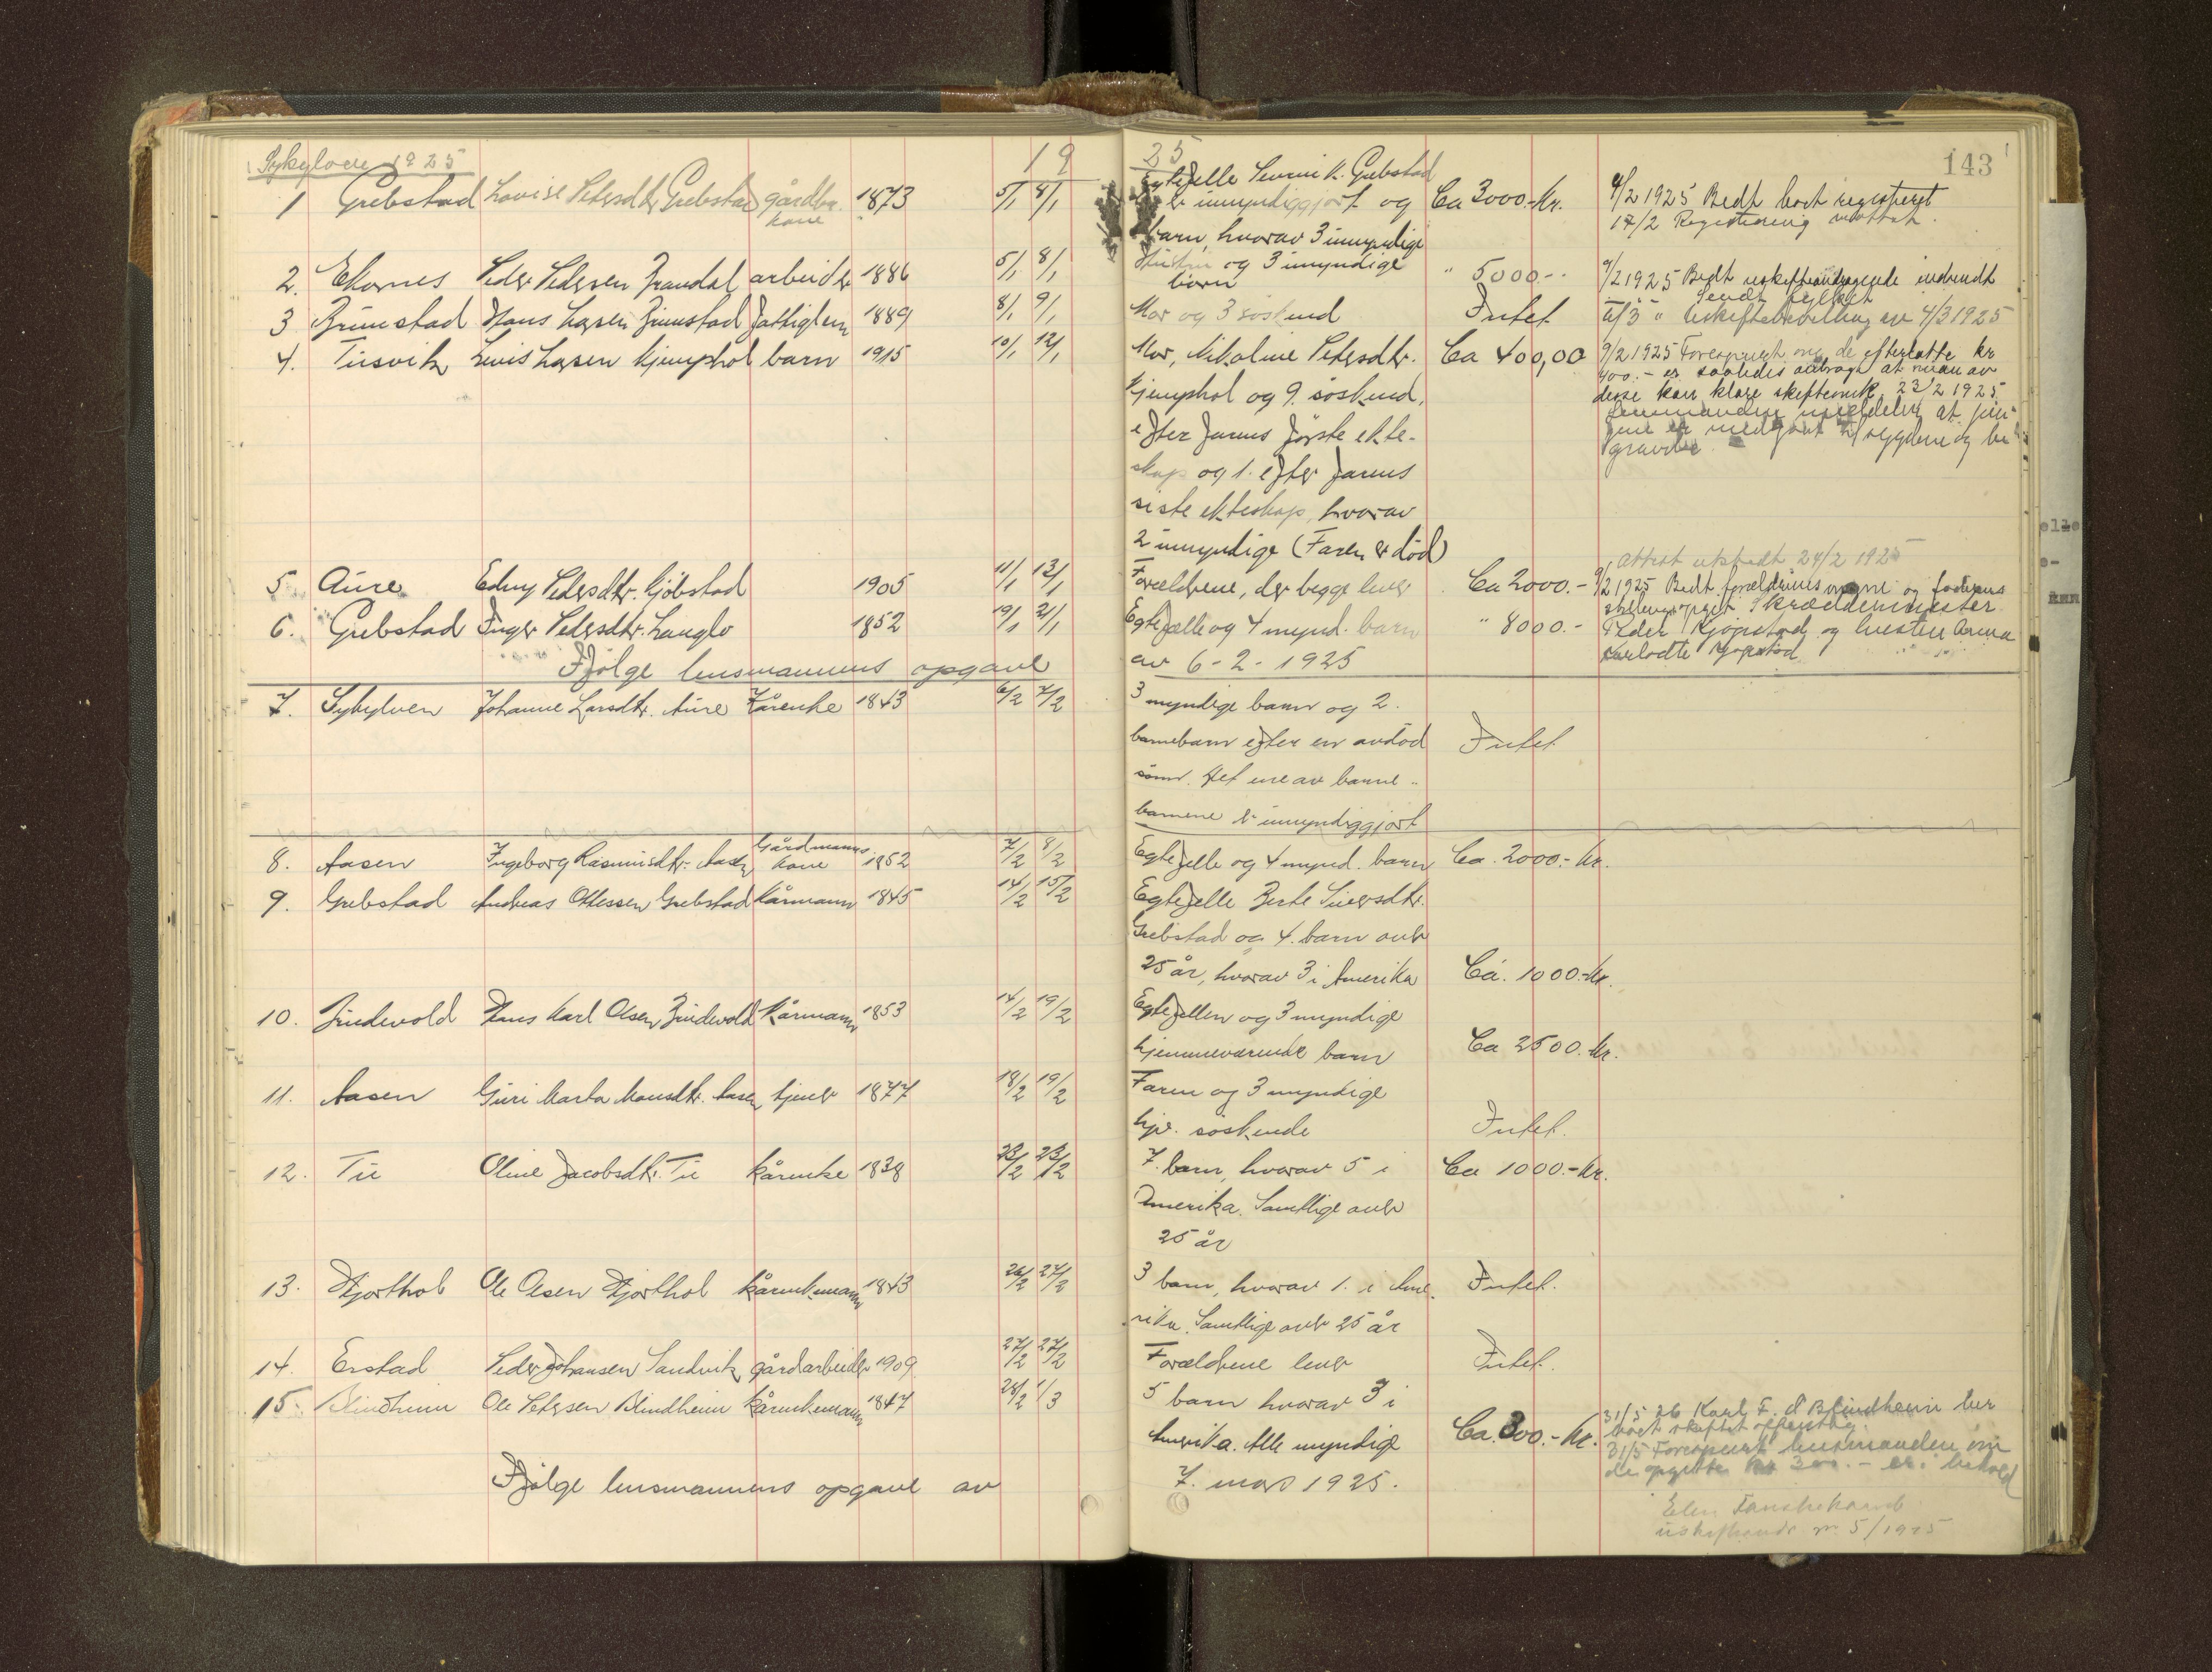 Sykylven 1925
19 25
143
1 Grebstad Lovise Petersdtr. Grebstad gårdbr. kone 1873 5/1 8/1
Egtefelle Sevrin K. Grebstad
er umyndiggjort og Ca 3000.- Kr.
barn, hvorav 3 umyndige
9/2 1925 Bedt boet registreret
17/2 Registrering mottat.
2. Ekornes Peder Pedersen Brandal arbeider 1886 5/1 8/1
Hustru og 3 umyndige
born " 5000.-
9/2 1925 Bedt uskifteandragende indsendt
Sendt fylket
3 Brunstad Hans Larsen Brunstad Fattiglem 1889 8/1 9/1 Mor og 3 søskend Intet
11/3 " Uskiftebevilling av 4/3 1925
4. Tusvik Lovis Larsen Kjemphol barn 1915 10/1 12/1 Mor, Nikoline Petersdtr. Ca 400,00
Kjemphol og 9 søskend,
efter farens første ekte-
skap og 1. efter farens
siste ekteskap, hvorav
2 umyndige (Faren er død)
9/2 1925 Forespurgt om de efterlatte kr
400.- er saaledes at man av
disse kan klare skifteomk. 23/2 1925
Lensmanden meddeler, at pen-
gene er medgaat til sygdom og be-
gravelse
Attest utstedt 24/2 1925
5. Aure Edny Pedersdtr. Gjøbstad 1905 11/1 13/1 Forældrene, der begge lever Ca 2000.-
9/2 1925 Bedt forældrenes navne og faderens
stilling opgit Skræddermester
Peder Kjøpstad og hustru Anna
6. Grebstad Inger Pedersdtr. Langlo 1852 19/1 21/1 Egtefælle og 4 mynd. barn " 8000.-
Ifølge lensmannens opgave av 6-2-1925
7. Sykylven Johanne Larsdtr. Aure Kårenke 1843 6/2 7/2
3 myndige barn og 2.
barnebarn efter en avdød Intet
sønn. Det ene av barne-
barnene er umyndiggjort
8. Aasen Ingeborg Rasmusdtr. Aasen Gårdmanns kone 1852 7/2 8/2 Egtefelle og 4 mynd. barn Ca. 2000.- Kr.
9. Grebstad Andreas Ottessen Grebstad Kårmann 1845 14/2 15/2 Egtefelle Berte Siversdtr.
Grebstad og 4. barn over
25 år, hvorav 3 i Amerika Ca. 1000.- Kr.
10. Brudevold Hans Karl Olsen Brudevold Kårmann 1853 14/2 19/2 Egtefellen og 3 myndige
hjemmeværende barn Ca 2500. Kr.
11. Aasen Guri Marta Monsdtr. Aasen tjener 1877 18/2 19/2 Faren og 3 myndige
hjv. søskende Intet.
12. Tu Oline Jacobsdtr. Tu kårenke 1838 23/2 23/2 7. barn, hvorav 5 i Ca 1000.- Kr.
Amerika. Samtlige over
25 år
13. Hjorthol Ole Olsen Hjorthol kårenkemann 1843 26/2 27/2 3 barn, hvorav 1. i Ame- Intet.
rika. Samtlige over 25 år
14. Erstad Peder Johansen Sandvik gårdarbeider 1909 27/2 27/2 Forældrene lever Intet.
15. Blindheim Ole Petersen Blindheim kårenkemann 1847 28/2 1/3 5 barn hvorav 3 i
Amerika. Alle myndige Ca. 300.- Kr.
31/5 26 Karl F. O Blindheim ber
boet skiftet offentlig.
31/5 Forespurt lensmanden om
de opgitte kr 300.- er i behold
Ifølge lensmannens opgave av 7. mars 1925.